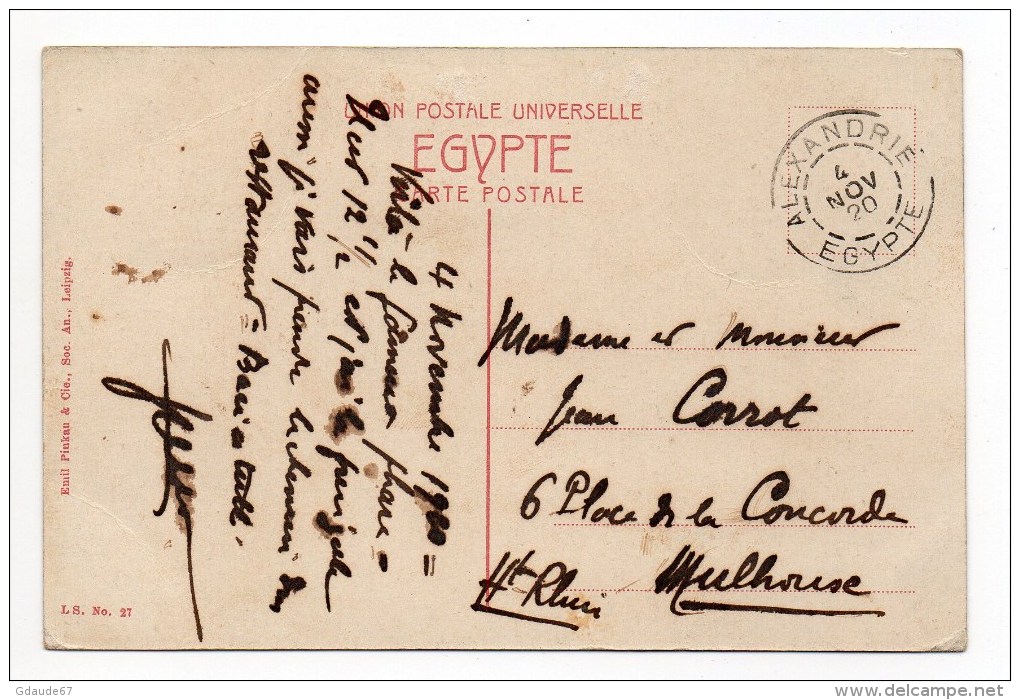 UNION POSTALE UNIVERSELLE
EGYPTE
CARTE POSTALE
ALEXANDRIE
4
NOV
20
EGYPTE
4 Novembre 1920 =
Voilà le fameux phare =
Il est 12 1/2 et j'ai la fringale
aussi je vais prendre le chemin du
restaurant =
Madame et Monsieur
Jean Corrot
6 Place de la Concorde
Mulhouse
Ht Rhin
Emil Pinkau & Cie., Soc. An., Leipzig.
LS. No. 27
Gdaude67
www.delcampe.net